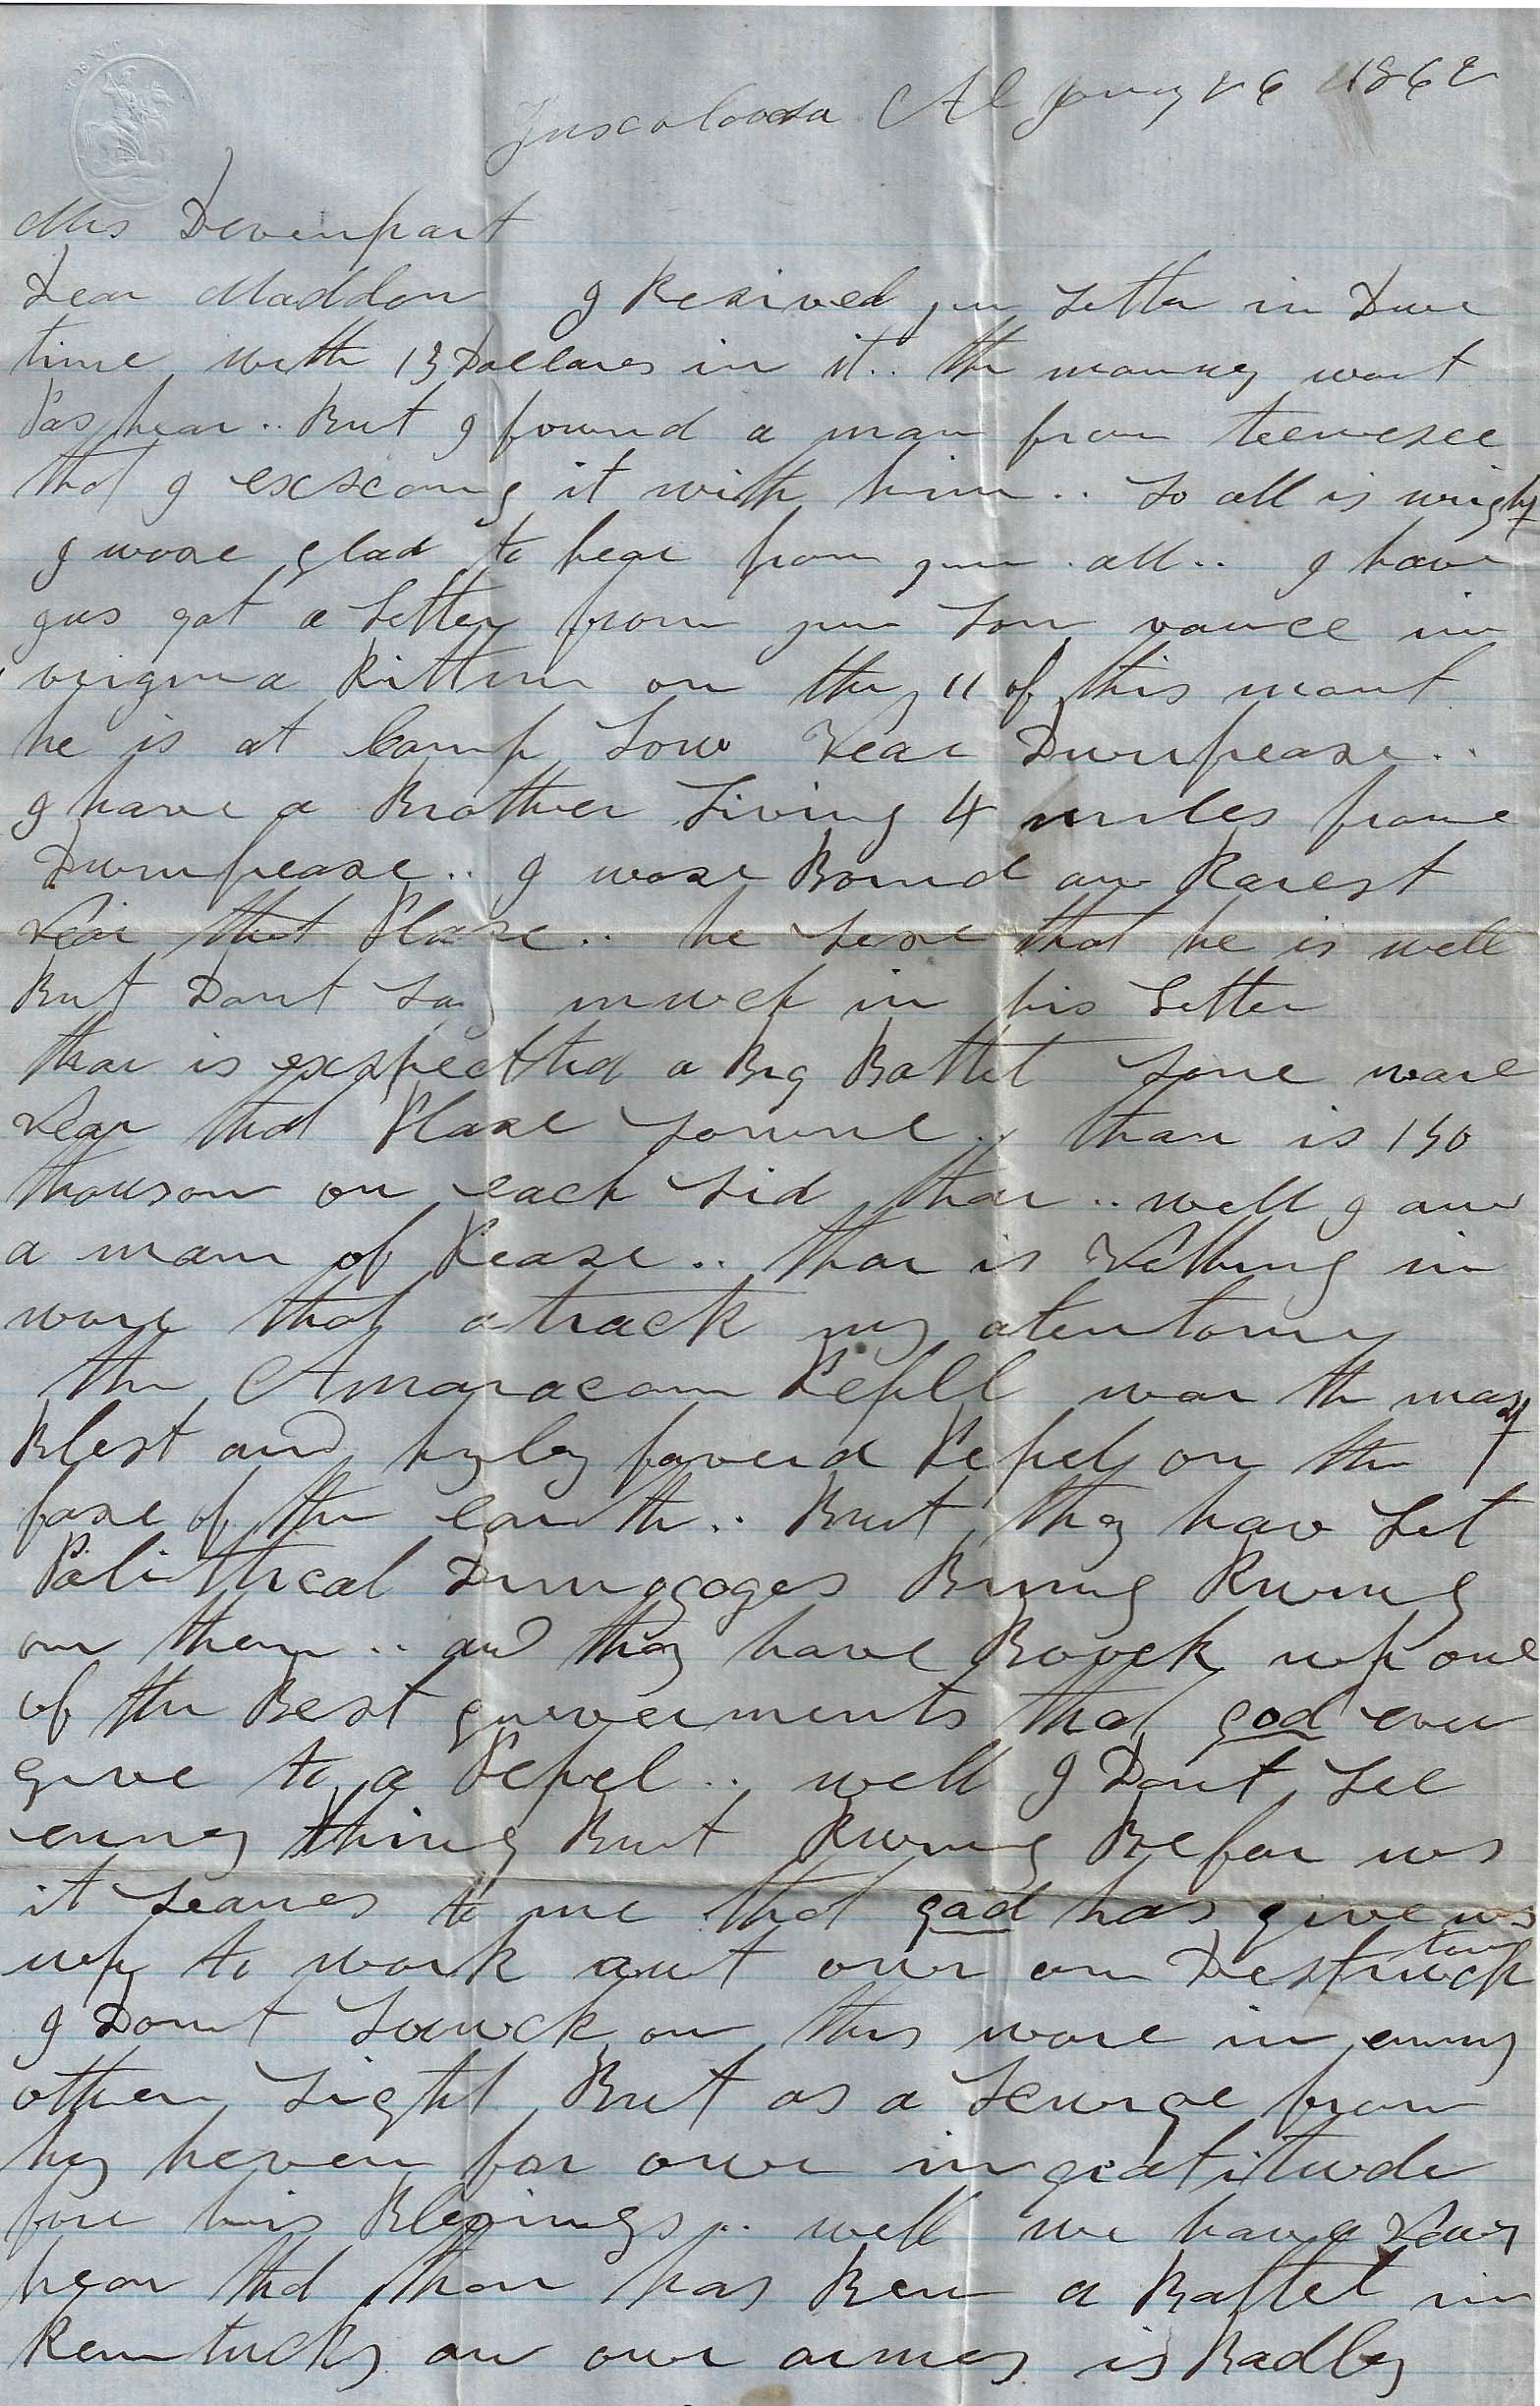 Tuscaloosa Al 26 1862
Mrs Devenpart
Dear Maddon I Resived your Letter in Due
time with 13 Dollares in it.. the mouney wont
Pas hear.. But I found a man from teenesee
that I exscang it with him.. So all is wright
I wose glad to hear from your all.. I have
gus got a Letter from your Son vance in
virginia Rittin on they 11 of this mont
he is at Camp Low Near Dumfrease..
I have a Brother Living 4 miles frome
Dumfrease.. I wose Bornd an Rarest
Near that Plase.. he Sese that he is well
But Dont Say much in his Letter
thar is exspectted a Big Battel Some ware
Near that Plase Soune.. thare is 150
thouson on each Sid thar.. well I am
a man of Pease.. thar is Nothing in
ware that atrack my atentony
the Amaracan Pepill war the most
Blest and hyley faverd Pepel on the
fase of the earth.. But they hav Let
Polithical Dimogoges Bring Ruing
on them.. and they have Brock up one
of the Best guverments that god ever
give to a Pepel.. well I Dont See
enny thing But Ruing Befor us
it Seames to me that god has give us
up to work out our own Destruck
tion
I Dont Louck on this ware in enny
other Light But as a Scurge from
hy heven for our ingratitude
for his Blessings.. well we have News
hear that thar has Ben a Battel in
Kentucky an our armey is Badley